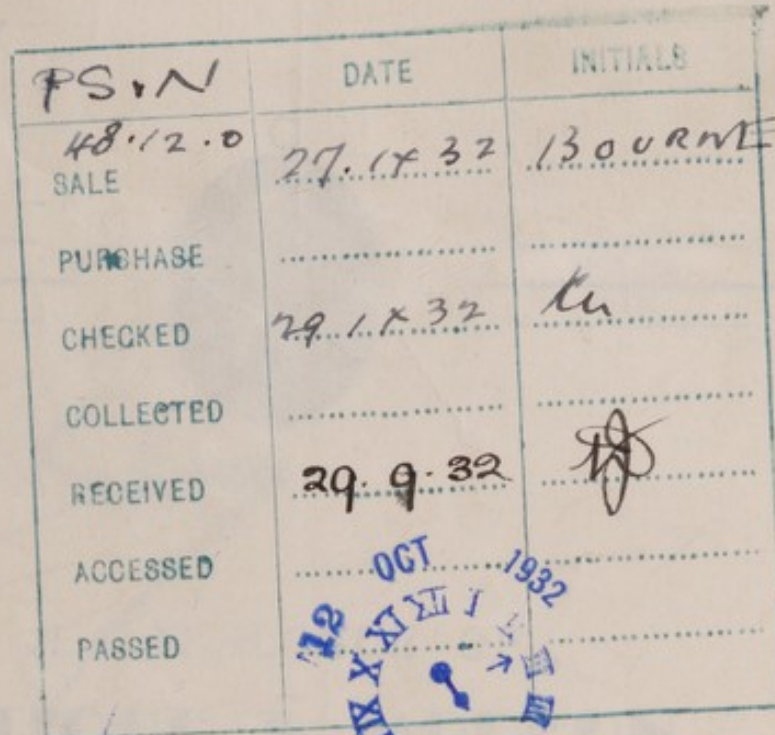 PS.N DATE INITIALS
48.12.0
SALE 27.IX 32 BOURNE
PURCHASE
CHECKED 29.IX 32
COLLECTED
RECEIVED 29.9.32
ACCESSED
PASSED
12 OCT 1932